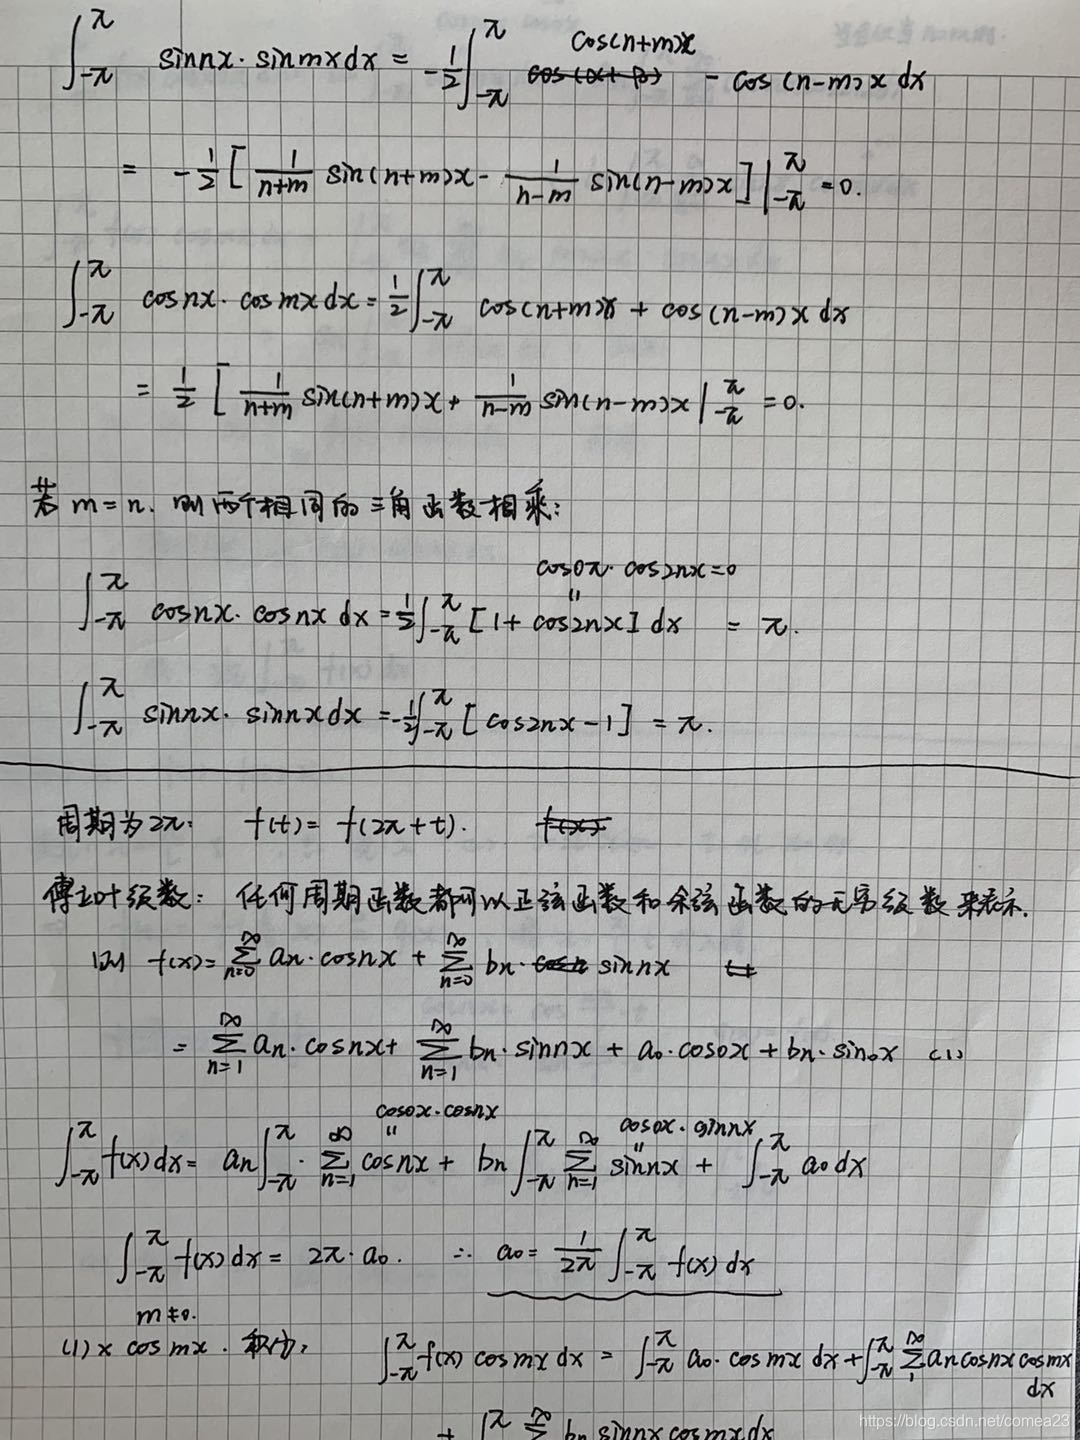 ∫_{-π}^{π} sinnx · sinmxdx = -1/2 ∫_{-π}^{π} cos(n+m)x - cos(n-m)x dx
= -1/2 [ 1/(n+m) sin(n+m)x - 1/(n-m) sin(n-m)x ] |_{-π}^{π} = 0.
∫_{-π}^{π} cosnx · cosmxdx = 1/2 ∫_{-π}^{π} cos(n+m)x + cos(n-m)x dx
= 1/2 [ 1/(n+m) sin(n+m)x + 1/(n-m) sin(n-m)x |_{-π}^{π} = 0.
若 m=n. 则两个相同的三角函数相乘:
cos0x · cos2nx=0
∫_{-π}^{π} cosnx · cosnx dx = 1/2 ∫_{-π}^{π} [1 + cos2nx] dx = π.
∫_{-π}^{π} sinnx · sinnxdx = -1/2 ∫_{-π}^{π} [cos2nx - 1] = π.
周期为2π: f(t) = f(2π+t). f(x)
傅立叶级数: 任何周期函数都可以正弦函数和余弦函数的无穷级数来表示.
则 f(x) = ∑_{n=0}^{∞} an · cosnx + ∑_{n=0}^{∞} bn · sinnx
= ∑_{n=1}^{∞} an · cosnx + ∑_{n=1}^{∞} bn · sinnx + a0 · cos0x + bn · sin0x (1)
cos0x · cosnx cos0x · sinnx
∫_{-π}^{π} f(x) dx = an ∫_{-π}^{π} · ∑_{n=1}^{∞} cosnx + bn ∫_{-π}^{π} ∑_{n=1}^{∞} sinnx + ∫_{-π}^{π} a0 dx
∫_{-π}^{π} f(x) dx = 2π · a0. ∴ a0 = 1/2π ∫_{-π}^{π} f(x) dx
m≠0.
(1) x cosmx. 积分, ∫_{-π}^{π} f(x) cosmx dx = ∫_{-π}^{π} a0 · cosmx dx + ∫_{-π}^{π} ∑_{1}^{∞} an cosnx cosmx
dx
+ ∫^{π} ∑^{∞} bn sinnx cosmxdx
https://blog.csdn.net/comea23